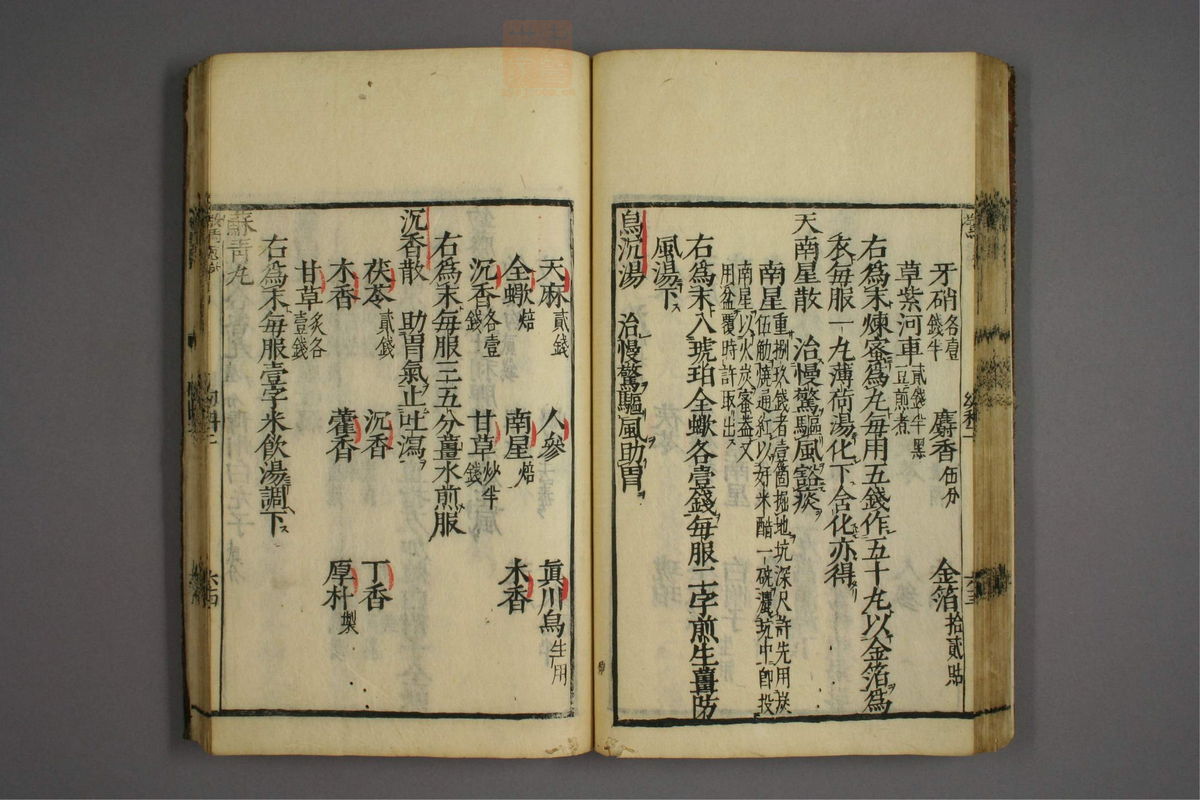 牙硝各壹錢半 麝香伍分 金箔拾貳貼
草紫河車貳錢半黑豆煎煮
右為末煉蜜為丸每用五錢作五十丸以金箔為
衣每服一丸薄荷湯化下含化亦得
天南星散 治慢驚驅風豁痰
南星重捌玖錢者壹箇掘地坑深尺許先用炭
伍觔燒通紅以好米醋一碗灑坑中即投
南星以火炭密蓋又
用盆覆時許取出
右為末入琥珀全蠍各壹錢每服二字煎生薑防
風湯下
烏沉湯 治慢驚驅風助胃
天麻貳錢 人參 眞川烏生用
全蠍焙 南星焙 木香
沉香各壹錢 甘草炒半錢
右為末每服三五分薑水煎服
沉香散 助胃氣止吐瀉
茯苓貳錢 沉香 丁香
木香 藿香 厚朴製
甘草炙各壹錢
右為末每服壹字米飲湯調下
蘇青丸